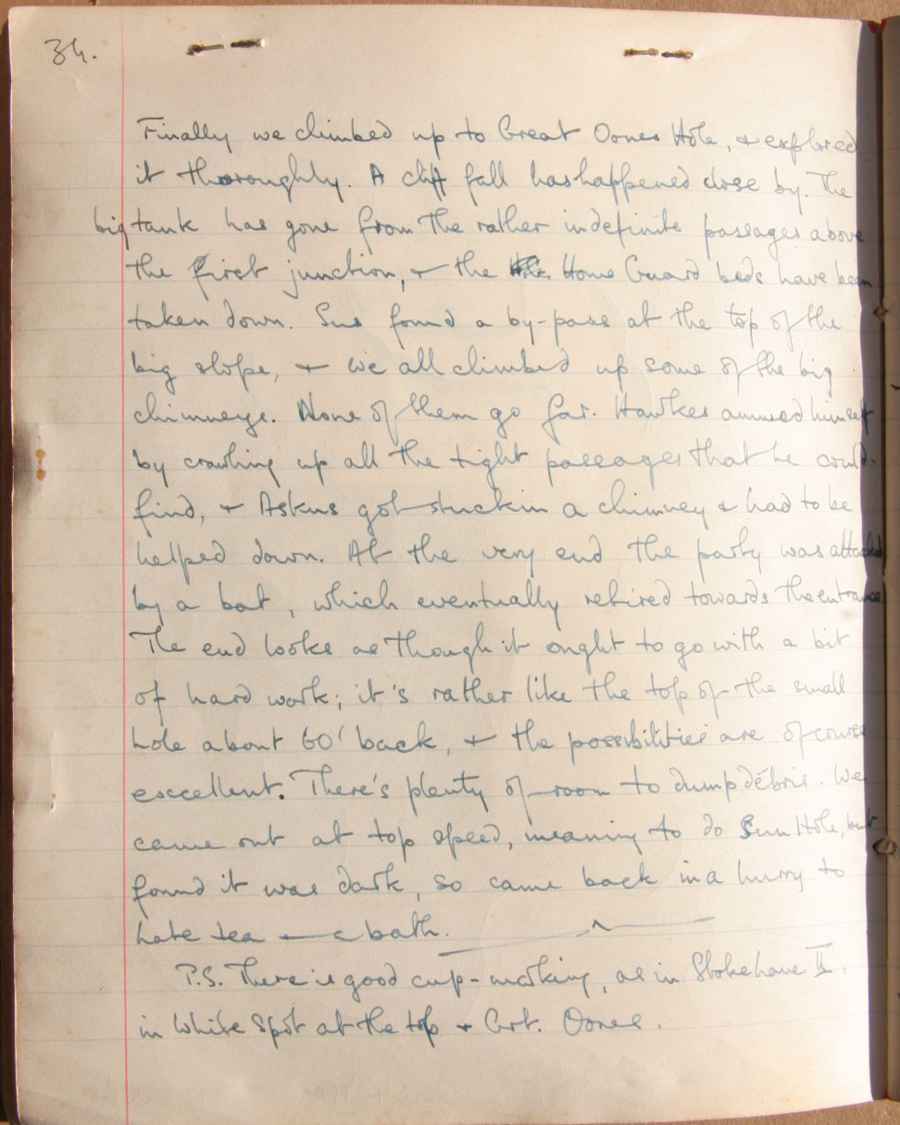 34.
Finally we climbed up to Great Oones Hole, & explored
it thoroughly. A cliff fall has happened close by. The
big tank has gone from the rather indefinite passages above
the first junction, & the Home Guard beds have been
taken down. Sus found a by-pass at the top of the
big slope, & we all climbed up some of the big
chimneys. None of them go far. Hawkes amused himself
by crawling up all the tight passages that he could
find, & Askus got stuck in a chimney & had to be
helped down. At the very end the party was attacked
by a bat, which eventually retired towards the entrance
The end looks as though it ought to go with a bit
of hard work; it's rather like the top of the small
hole about 60' back, & the possibilities are of course
excellent. There's plenty of room to dump débris. We
came out at top speed, meaning to do Sun Hole, but
found it was dark, so came back in a hurry to
late tea & a bath.
P.S. There is good cup-marking, as in Stoke Lane II.
in White Spot at the top & Grt. Oones.